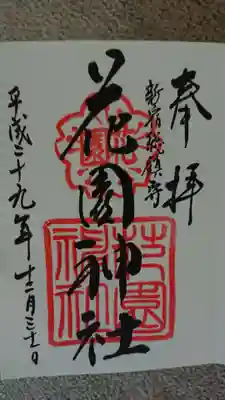 奉拝
新宿総鎮守
花園神社
平成二十九年十二月三十一日
花園
花園神社